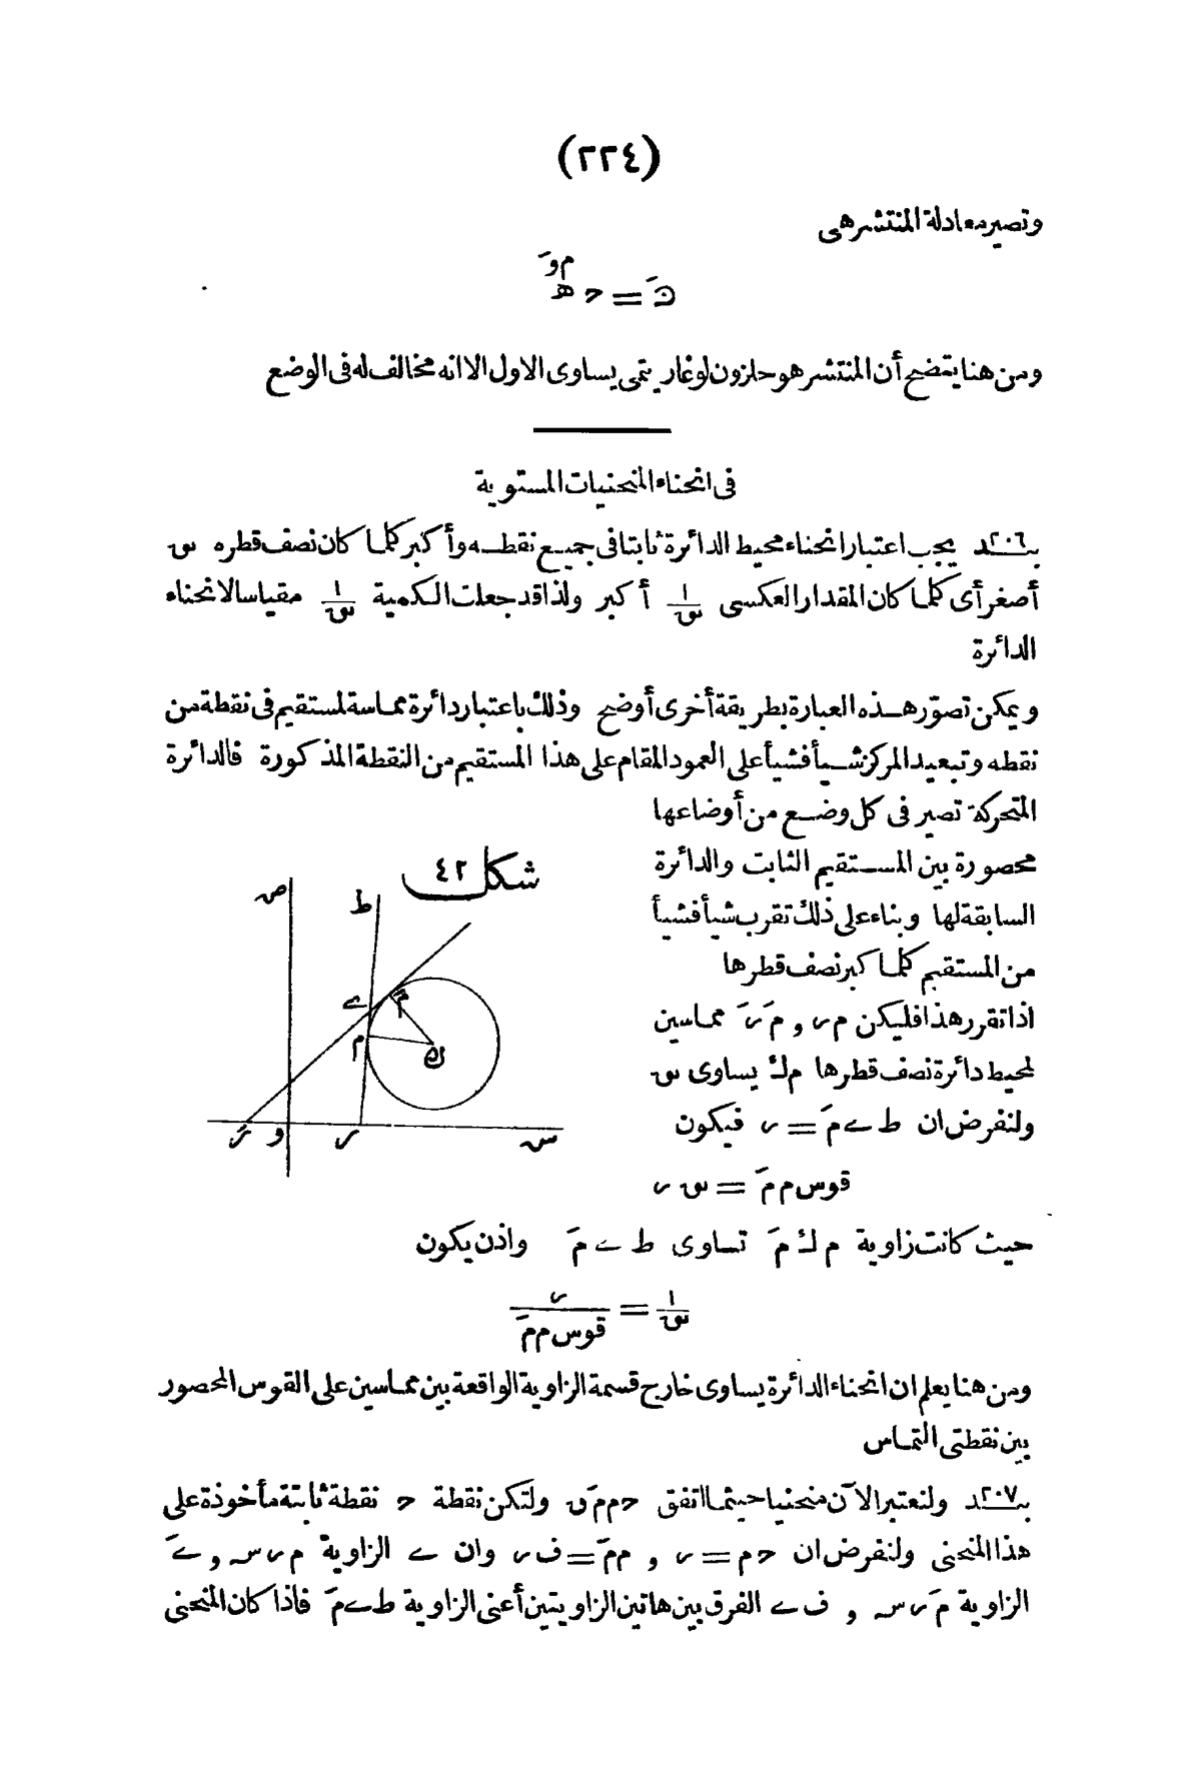 (٢٢٤)
وتصير معادلة المنتشر هى
ومن هنا يتضح أن المنتشر هو حلزون لوغاريتمى يساوى الاول الا انه مخالف له فى الوضع
فى انحناء المنحنيات المستوية
٢٠٦ بند يجب اعتبار انحناء محيط الدائرة ثابتا فى جميع نقطه وأكبر كلما كان نصف قطره س
أصغر أى كلما كان المقدار العكسى ١/س أكبر ولذا قد جعلت الكمية ١/س مقياسا لانحناء
الدائرة
ويمكن تصوّر هذه العبارة بطريقة أخرى أوضح وذلك باعتبار دائرة مماسة لمستقيم فى نقطة من
نقطه وتبعيد المركز شيأ فشيأ على العمود المقام على هذا المستقيم من النقطة المذكورة فالدائرة
المتحركة تصير فى كل وضع من أوضاعها
محصورة بين المستقيم الثابت والدائرة
السابقة لها وبناء على ذلك تقرب شيأ فشيأ
من المستقيم كلما كبر نصف قطرها
اذا تقرر هذا فليكن م ر و مَ رَ مماسين
لمحيط دائرة نصف قطرها م ك يساوى س
ولنفرض ان ط ے مَ = ر فيكون
قوس م مَ = س ر
شكل ٤٢
ص
ط
ے
مَ
م
ك
رَ
و
ر
س
حيث كانت زاوية م ك مَ تساوى ط ے مَ واذن يكون
١/س = ر/قوس م مَ
ومن هنا يعلم ان انحناء الدائرة يساوى خارج قسمة الزاوية الواقعة بين مماسين على القوس المحصور
بين نقطتى التماس
٢٠٧ بند ولنعتبر الآن منحنيا حيثما اتفق ح م مَ ولتكن نقطة ح نقطة ثابتة مأخوذة على
هذا المنحنى ولنفرض ان ح م = ر و م مَ = ف ر وان ے الزاوية م ر س و ےَ
الزاوية مَ ر س و ف ے الفرق بين هاتين الزاويتين أعنى الزاوية ط ے مَ فاذا كان المنحنى